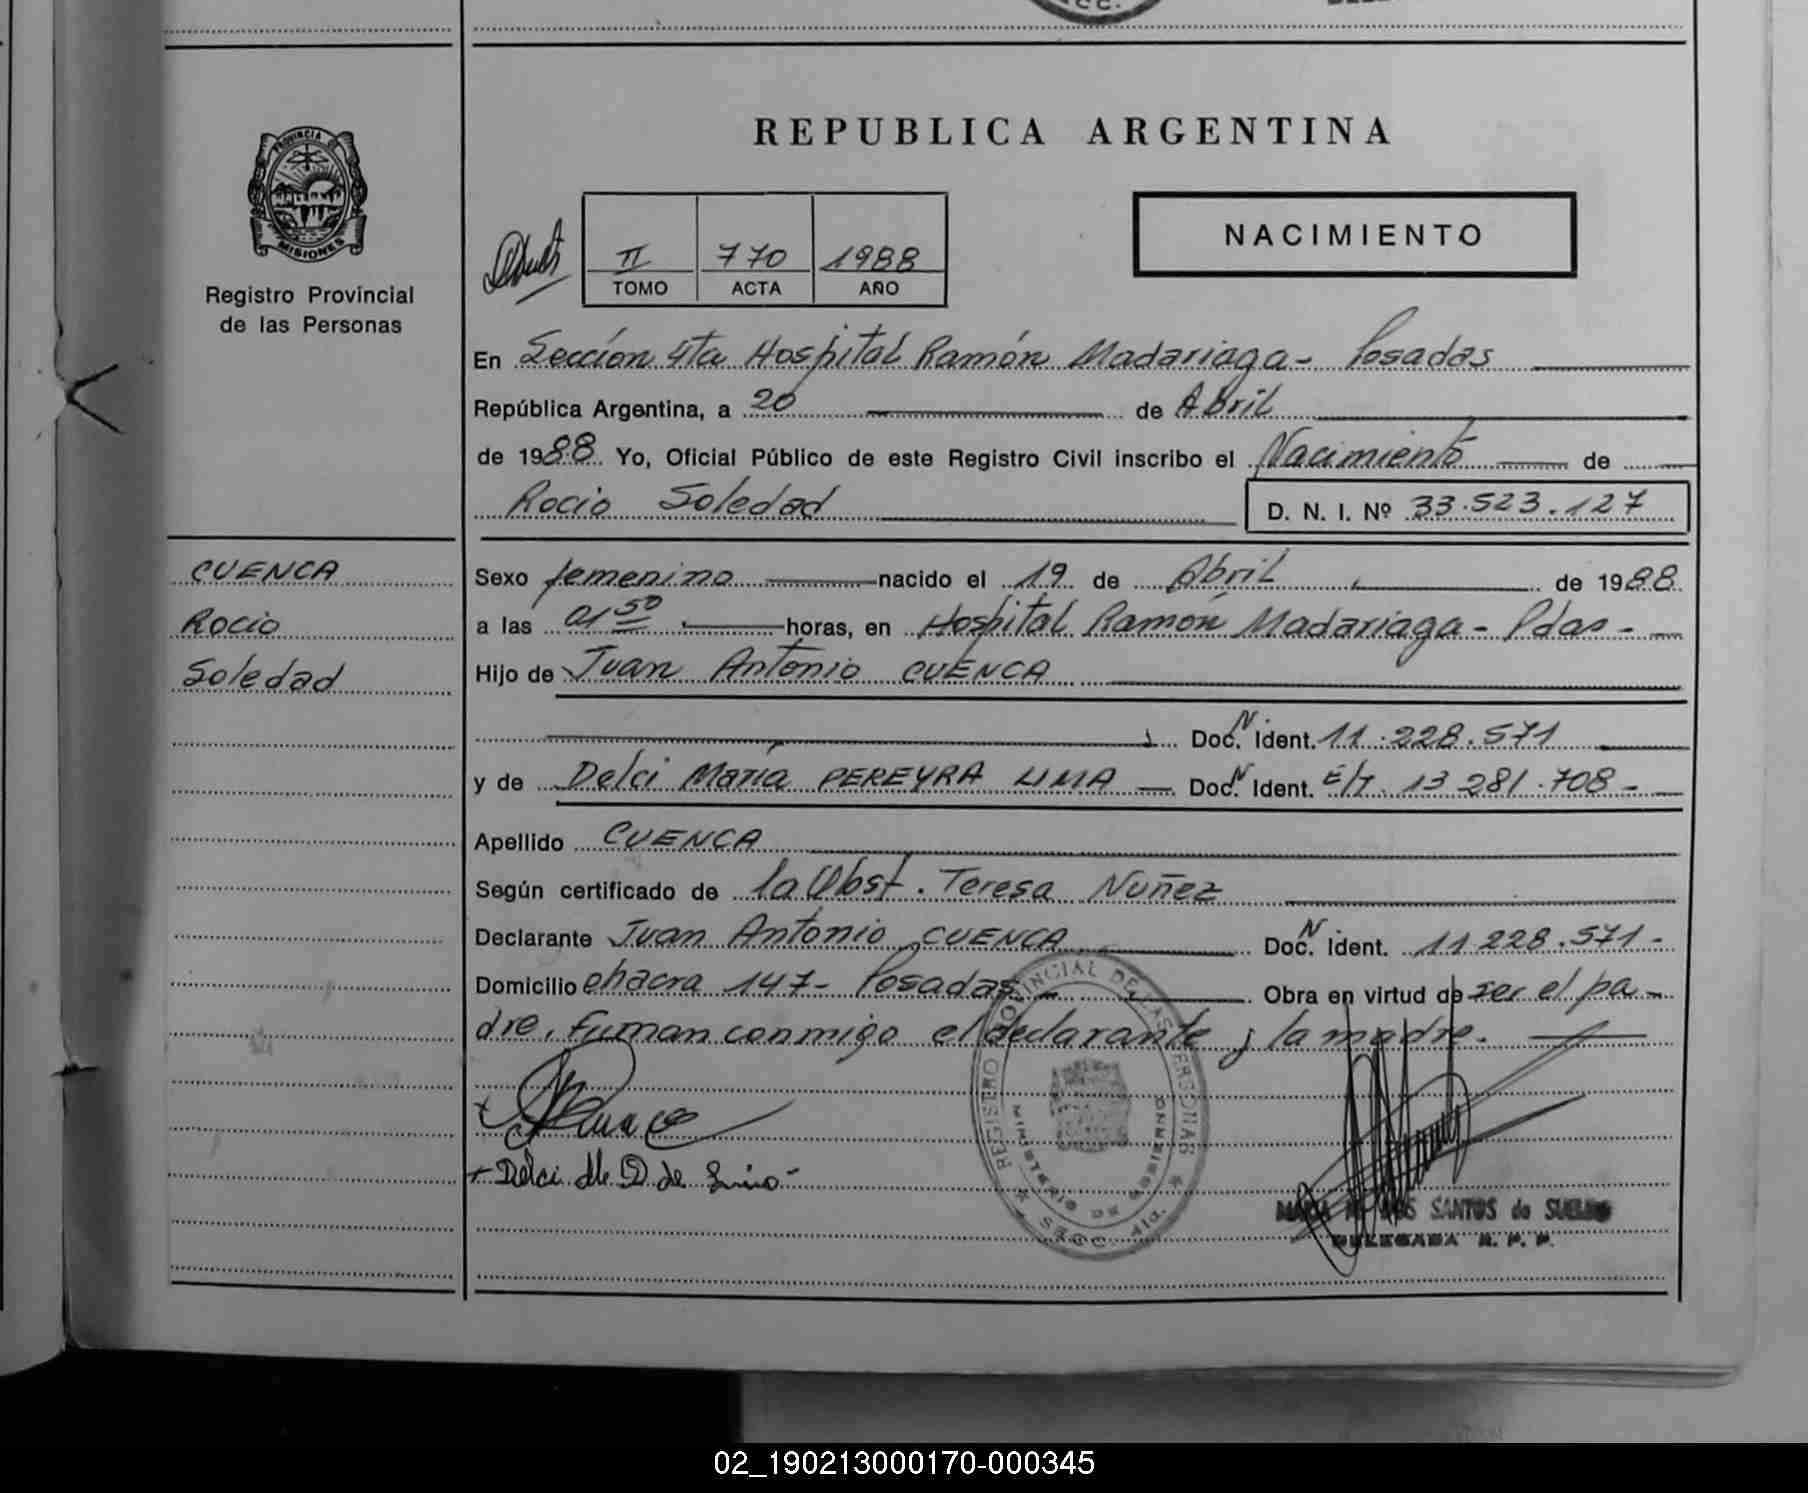 PROVINCIA DE
MISIONES
Registro Provincial
de las Personas
CUENCA
Rocio
Soledad
REPUBLICA ARGENTINA
II 770 1988
TOMO ACTA AÑO
NACIMIENTO
En Sección 4ta Hospital Ramón Madariaga - Posadas
República Argentina, a 20 de Abril
de 1988 Yo, Oficial Público de este Registro Civil inscribo el Nacimiento de
Rocio Soledad D. N. I. Nº 33.523.127
Sexo femenino nacido el 19 de Abril de 1988
a las 01 50 horas, en Hospital Ramón Madariaga - Pdas -
Hijo de Juan Antonio CUENCA
Doc. N Ident. 11.228.571
y de Delci María PEREYRA LIMA Doc. N Ident. E/T. 13 281.708 -
Apellido CUENCA
Según certificado de la Obst. Teresa Nuñez
Declarante Juan Antonio CUENCA Doc. N Ident. 11.228.571 -
Domicilio chacra 147 - Posadas - Obra en virtud de ser el pa-
dre, fuman conmigo el declarante y la madre. -
REGISTRO PROVINCIAL DE LAS PERSONAS
MINISTERIO DE GOBIERNO
SECC. 4ta.
Delci de
SANTOS de
DELEGADA R. P. P.
02_190213000170-000345